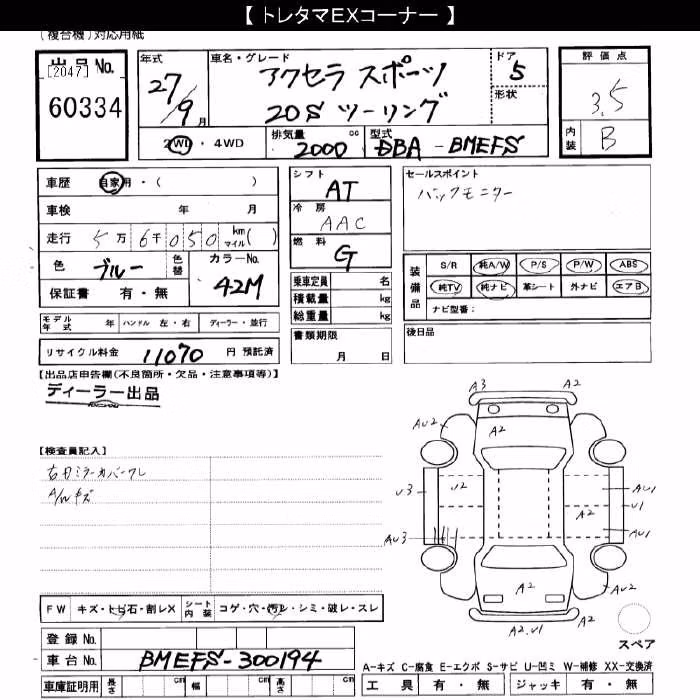 【 トレタマEXコーナー 】
(複合機)対応用紙
出品No.
[2047]
60334
年式
27/9月
車名・グレード
アクセラ スポーツ
20S ツーリング
ドア
5
形状
評価点
3.5
内装
B
2WD ・ 4WD
排気量 cc
2000
型式
DBA - BMEFS
車歴 自家用・( )
車検 年 月
走行 5万 6千 050 km マイル( )
色 ブルー 色替
カラーNo. 42M
保証書 有・無
シフト
AT
冷房
AAC
燃料
G
乗車定員 名
積載量 kg
総重量 kg
セールスポイント
バックモニター
装備品
S/R 純A/W P/S P/W ABS
純TV 純ナビ 革シート 外ナビ エアB
ナビ型番:
モデル年式 年 ハンドル 左・右 ディーラー・並行
書類期限
月 日
後日品
リサイクル料金 11070 円 預託済
【出品店申告欄(不良箇所・欠品・注意事項等)】
ディーラー出品
【検査員記入】
右ドミラーカバーワレ
A/Wキズ
A3 A2
AU2
A2
U3
U2
AU1
U1
A2
AU1
AU3
A2
AU2
A2.U1
スペア
FW キズ・トビ石・割レX
シート内装 コゲ・穴・汚レ・シミ・破レ・スレ
登録No.
車台No. BMEFS-300194
車庫証明用 長さ cm 幅 cm 高さ cm
A-キズ C-腐食 E-エクボ S-サビ U-凹ミ W-補修 XX-交換済
工具 有・無 ジャッキ 有・無